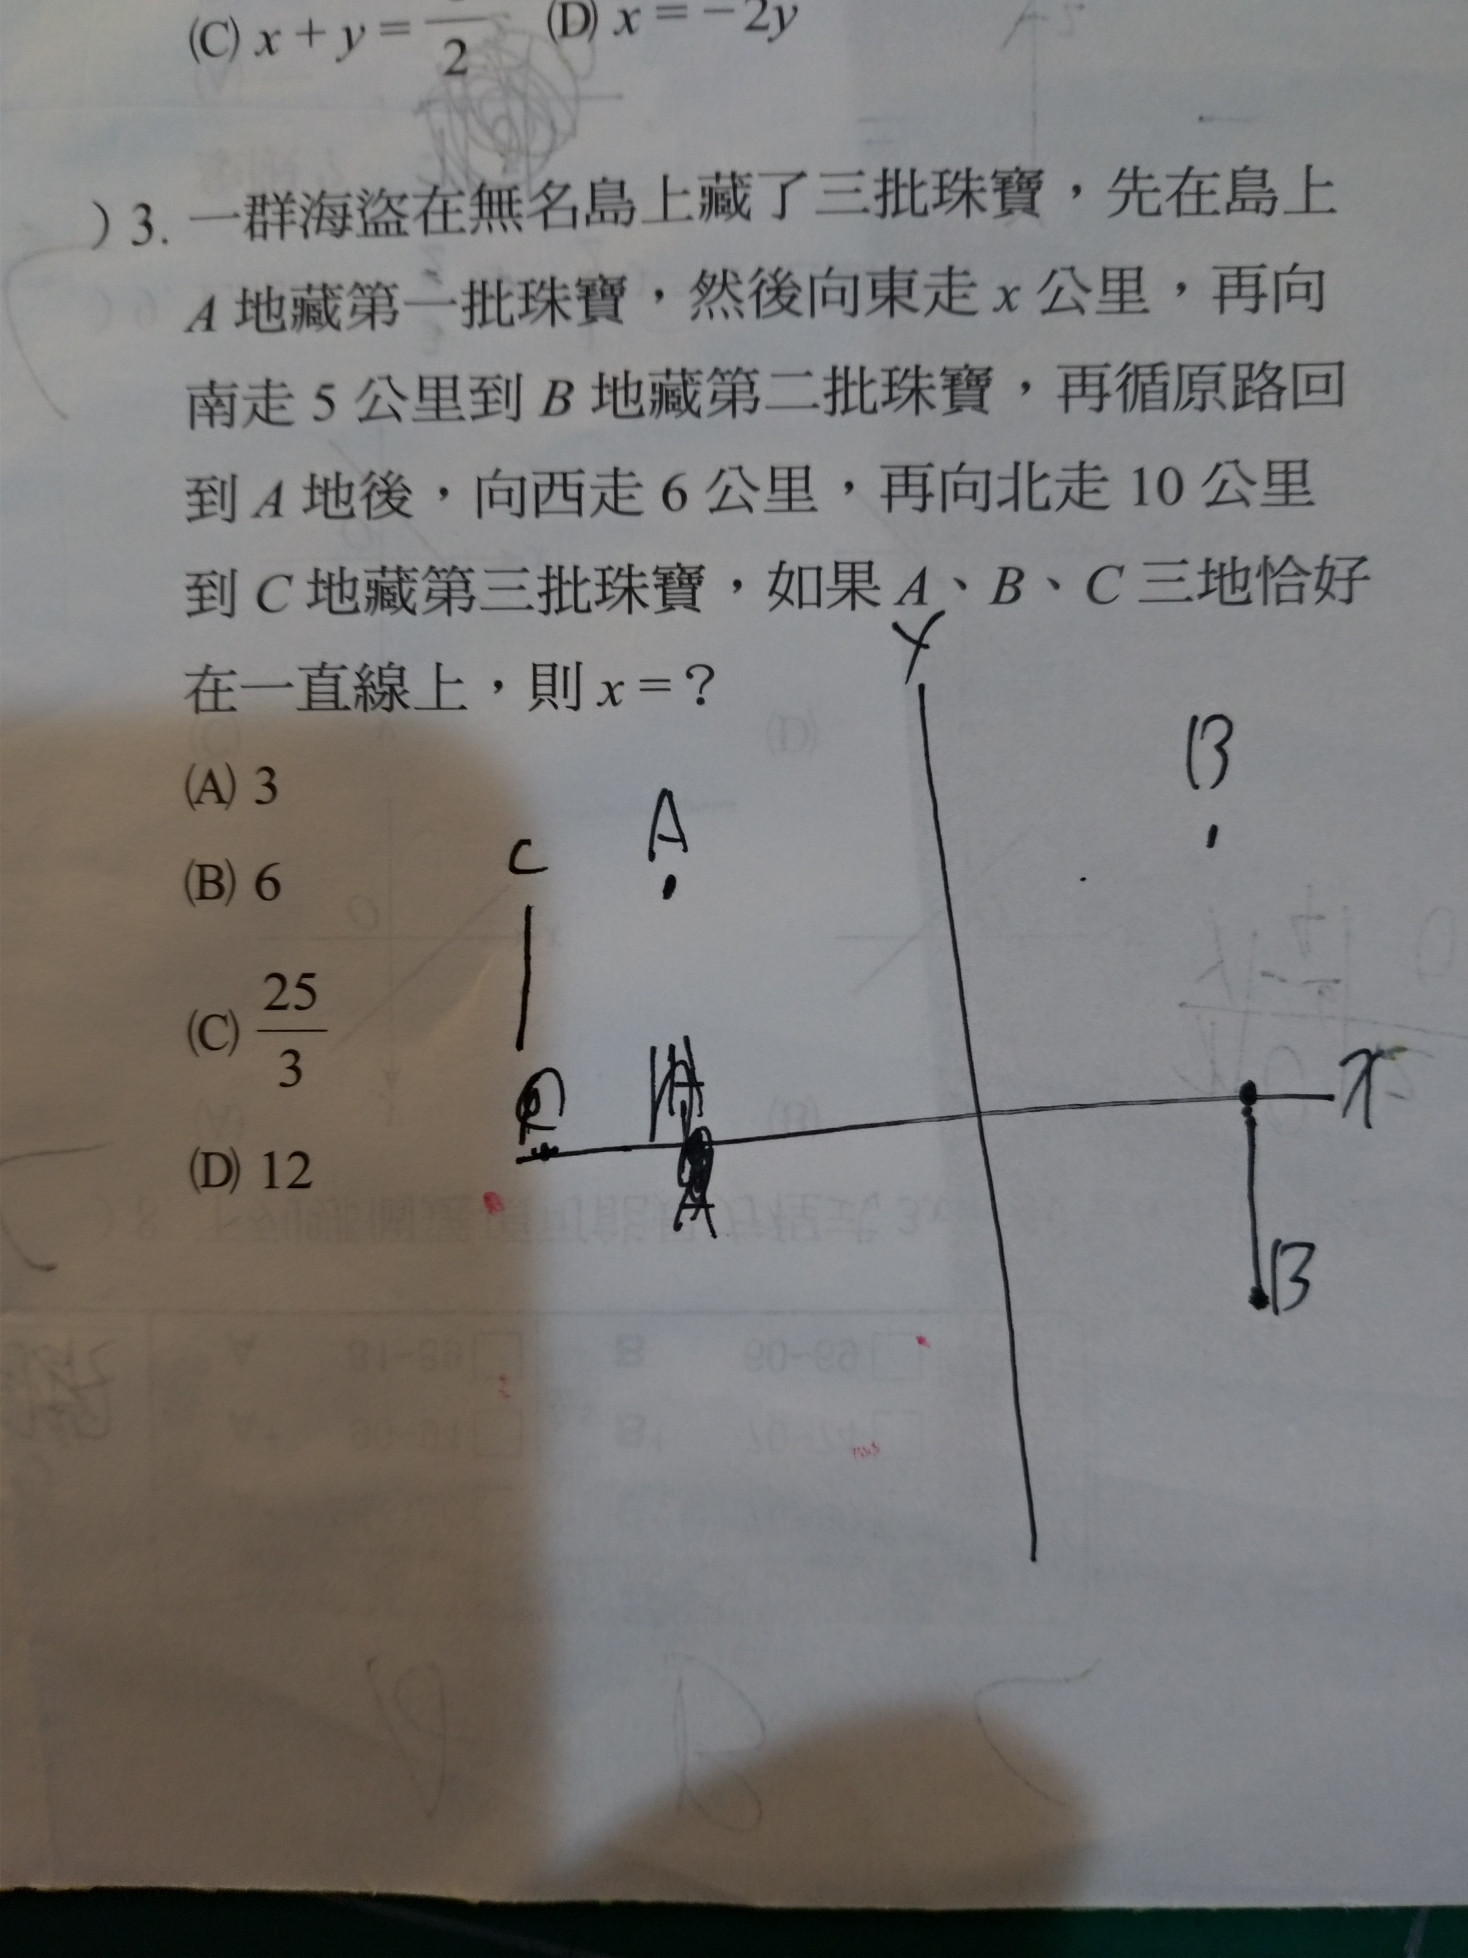 (C) x + y = 2 (D) x = −2y
) 3. 一群海盜在無名島上藏了三批珠寶，先在島上
A 地藏第一批珠寶，然後向東走 x 公里，再向
南走 5 公里到 B 地藏第二批珠寶，再循原路回
到 A 地後，向西走 6 公里，再向北走 10 公里
到 C 地藏第三批珠寶，如果 A、B、C 三地恰好
在一直線上，則 x = ?
(A) 3
(B) 6
(C) 25/3
(D) 12
Y
B
A
C
x
A
B